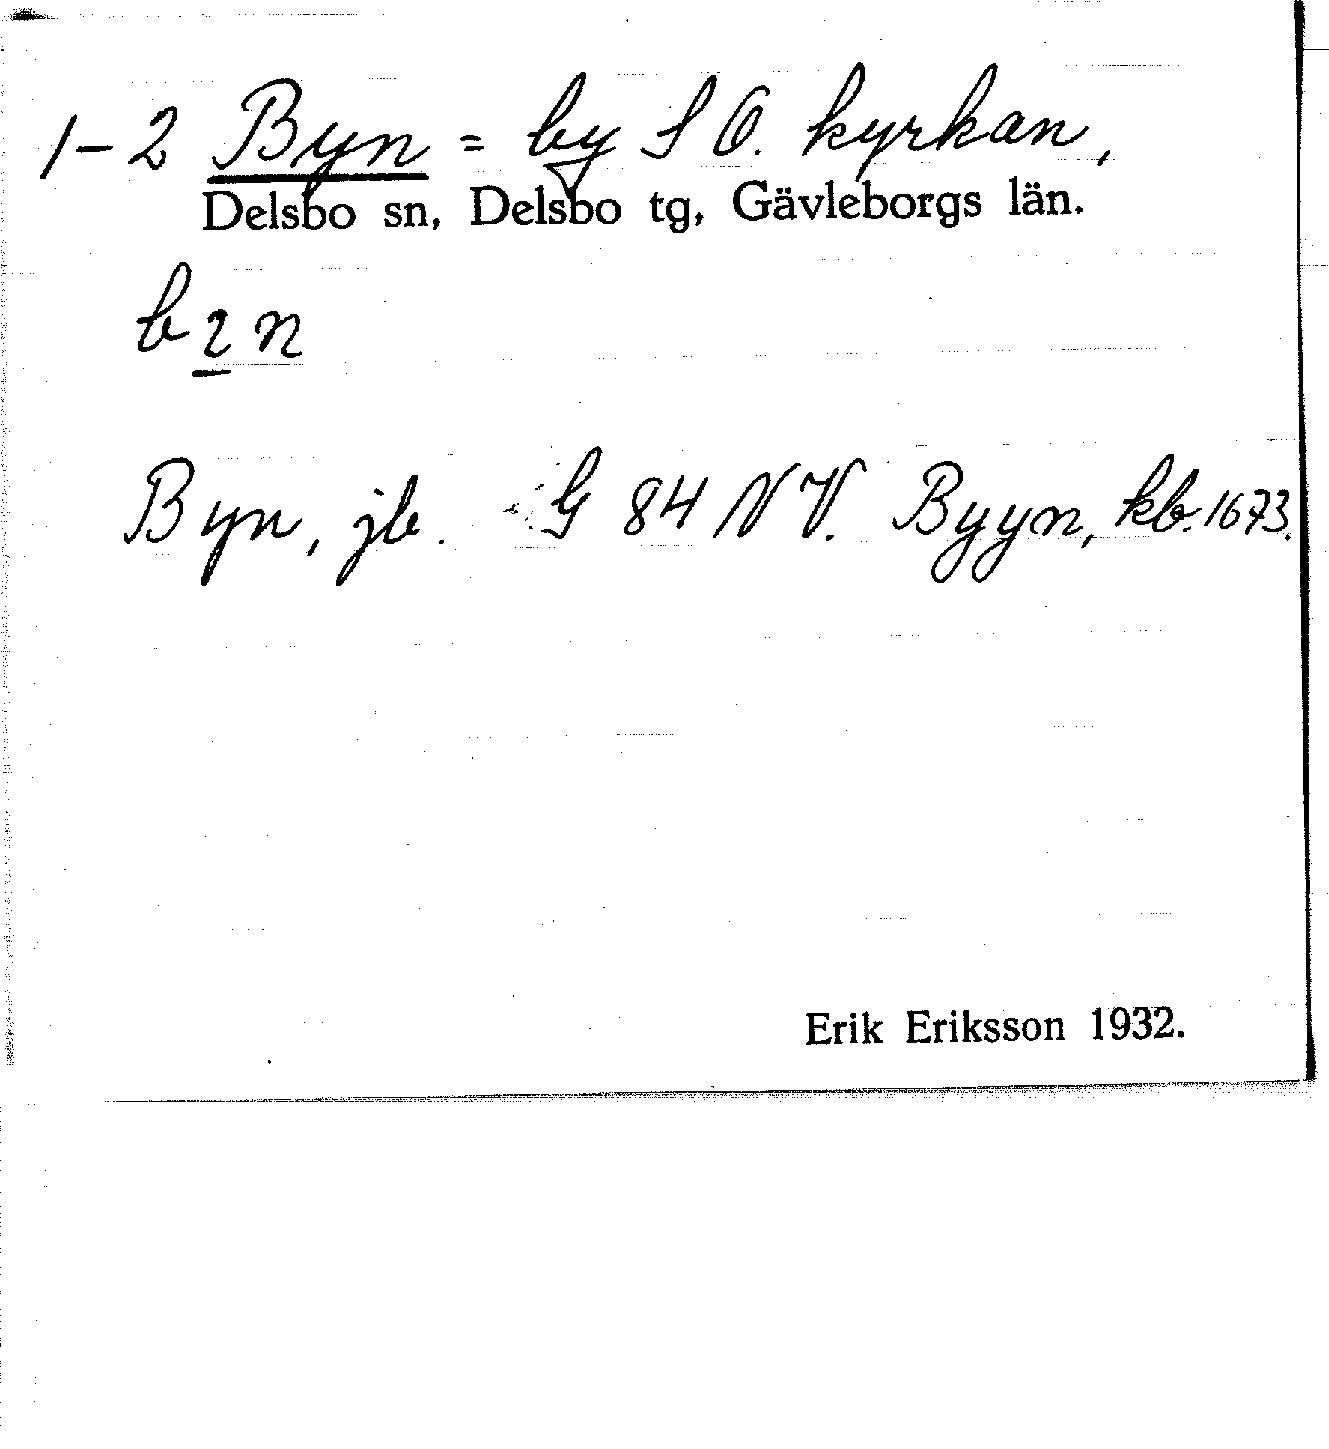 1-2 Byn = by S O. kyrkan,
Delsbo sn, Delsbo tg, Gävleborgs län.
b2n
Byn, jb. G 84 NV. Byyn, kb. 1673.
Erik Eriksson 1932.